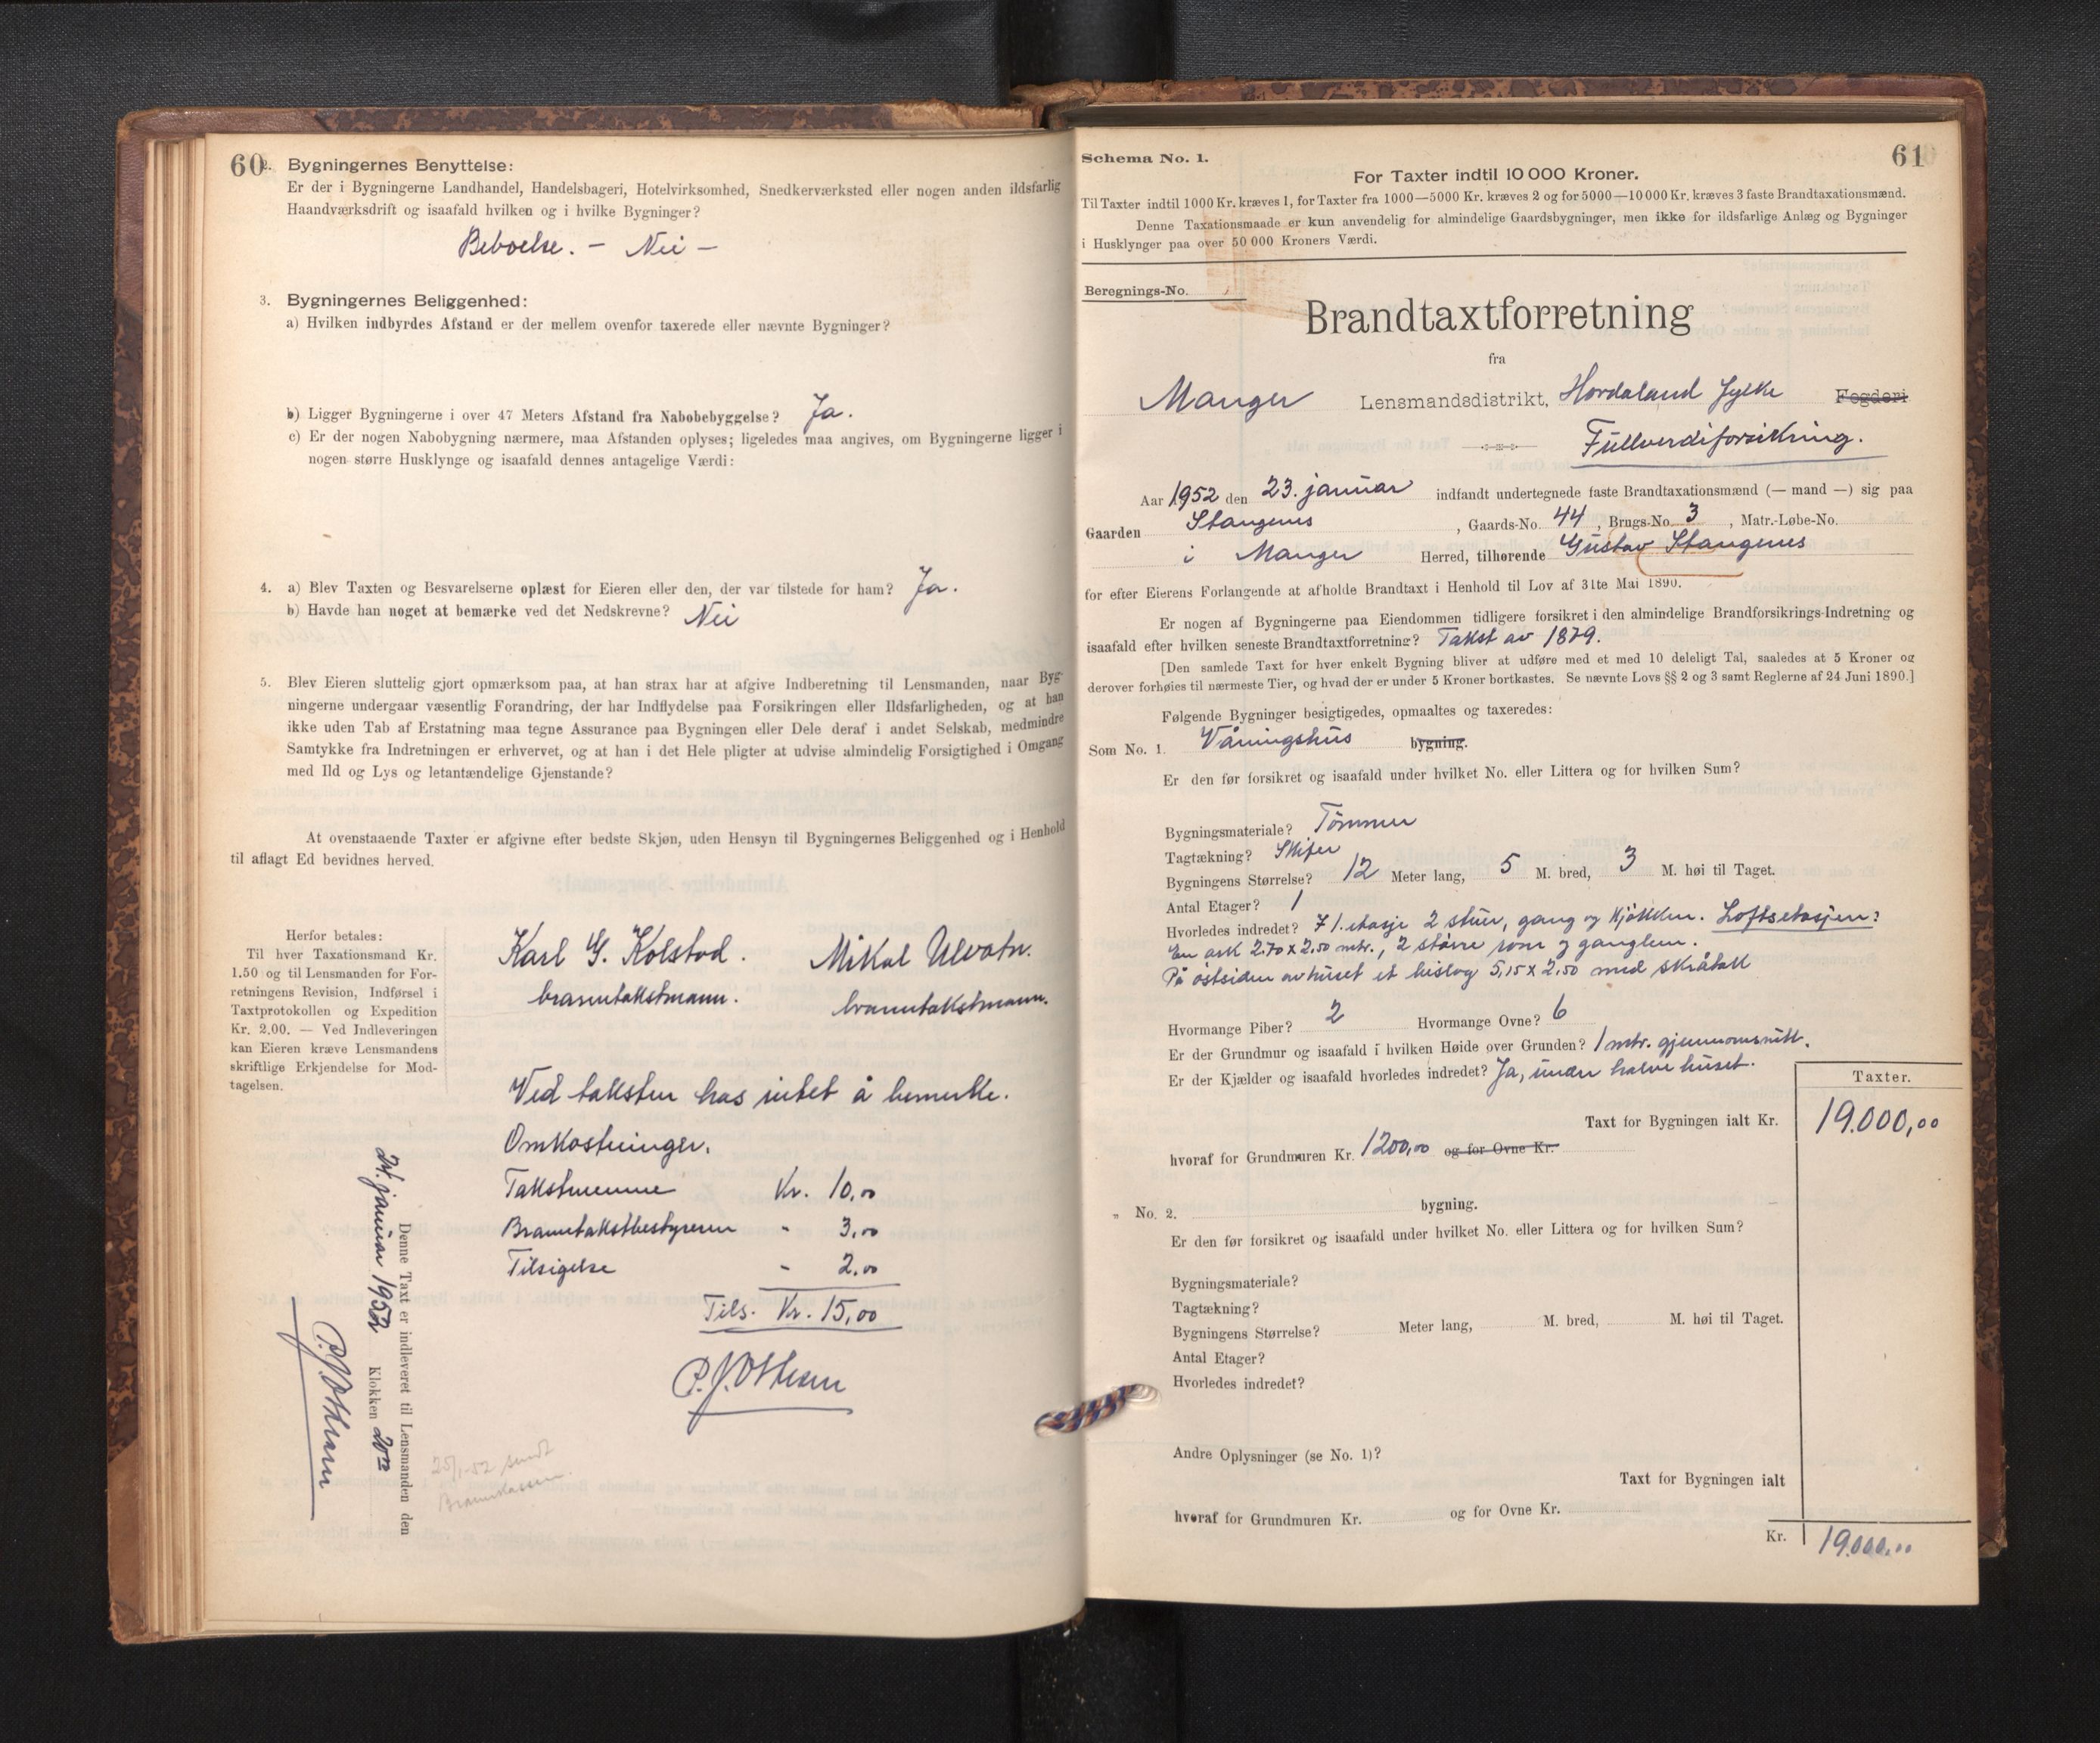 60
2. Bygningernes Benyttelse:
Er der i Bygningerne Landhandel, Handelsbageri, Hotelvirksomhed, Snedkerværksted eller nogen anden ildsfarlig
Haandværksdrift og isaafald hvilken og i hvilke Bygninger?
Beboelse. – Nei –
3. Bygningernes Beliggenhed:
a) Hvilken indbyrdes Afstand er der mellem ovenfor taxerede eller nævnte Bygninger?
b) Ligger Bygningerne i over 47 Meters Afstand fra Nabobebyggelse? Ja.
c) Er der nogen Nabobygning nærmere, maa Afstanden oplyses; ligeledes maa angives, om Bygningerne ligger i
nogen større Husklynge og isaafald dennes antagelige Værdi:
4. a) Blev Taxten og Besvarelserne oplæst for Eieren eller den, der var tilstede for ham? Ja.
b) Havde han noget at bemærke ved det Nedskrevne? Nei
5. Blev Eieren sluttelig gjort opmærksom paa, at han strax har at afgive Indberetning til Lensmanden, naar Byg-
ningerne undergaar væsentlig Forandring, der har Indflydelse paa Forsikringen eller Ildsfarligheden, og at han
ikke uden Tab af Erstatning maa tegne Assurance paa Bygningen eller Dele deraf i andet Selskab, medmindre
Samtykke fra Indretningen er erhvervet, og at han i det Hele pligter at udvise almindelig Forsigtighed i Omgang
med Ild og Lys og letantændelige Gjenstande?
At ovenstaaende Taxter er afgivne efter bedste Skjøn, uden Hensyn til Bygningernes Beliggenhed og i Henhold
til aflagt Ed bevidnes herved.
Herfor betales:
Til hver Taxationsmand Kr.
1.50 og til Lensmanden for For-
retningens Revision, Indførsel i
Taxtprotokollen og Expedition
Kr. 2.00. — Ved Indleveringen
kan Eieren kræve Lensmandens
skriftlige Erkjendelse for Mod-
tagelsen.
Karl G. Kolstad. Mikal Ulvatn.
branntakstmann. branntakstmann.
Ved taksten has intet å bemerke.
Omkostninger.
Takstmennene Kr. 10,00
Branntakstbestyreren " 3,00
Tilsigelse " 2,00
Tils. Kr. 15,00
P.J. Othem
Denne Taxt er indleveret til Lensmanden den
24. januar 1952 Klokken 20 00
P.J. Othem
25/1-52 sendt
Brannkassen.
61
Schema No. 1.
For Taxter indtil 10 000 Kroner.
Til Taxter indtil 1000 Kr. kræves 1, for Taxter fra 1000—5000 Kr. kræves 2 og for 5000—10 000 Kr. kræves 3 faste Brandtaxationsmænd.
Denne Taxationsmaade er kun anvendelig for almindelige Gaardsbygninger, men ikke for ildsfarlige Anlæg og Bygninger
i Husklynger paa over 50 000 Kroners Værdi.
Beregnings-No.
Brandtaxtforretning
fra
Manger Lensmandsdistrikt, Hordaland fylke Fogderi
Fullverdiforsikring.
Aar 1952 den 23. januar indfandt undertegnede faste Brandtaxationsmænd (— mand —) sig paa
Gaarden Stangenes, Gaards-No. 44, Brugs-No. 3, Matr.-Løbe-No.
i Manger Herred, tilhørende Gustav Stangenes
for efter Eierens Forlangende at afholde Brandtaxt i Henhold til Lov af 31te Mai 1890.
Er nogen af Bygningerne paa Eiendommen tidligere forsikret i den almindelige Brandforsikrings-Indretning og
isaafald efter hvilken seneste Brandtaxtforretning? Takst av 1879.
[Den samlede Taxt for hver enkelt Bygning bliver at udføre med et med 10 deleligt Tal, saaledes at 5 Kroner og
derover forhøies til nærmeste Tier, og hvad der er under 5 Kroner bortkastes. Se nævnte Lovs §§ 2 og 3 samt Reglerne af 24 Juni 1890.]
Følgende Bygninger besigtigedes, opmaaltes og taxeredes:
Som No. 1. Våningshus bygning.
Er den før forsikret og isaafald under hvilket No. eller Littera og for hvilken Sum?
Bygningsmateriale? Tømmer
Tagtækning? Skifer
Bygningens Størrelse? 12 Meter lang, 5 M. bred, 3 M. høi til Taget.
Antal Etager? 1
Hvorledes indredet? I 1. etasje 2 stuer, gang og kjøkken. Loftsetasjen:
En ark 2.70 x 2.50 mtr., 2 større rom og ganglem.
På østsiden av huset et bislag 5,15 x 2,50 med skråtak
Hvormange Piber? 2 Hvormange Ovne? 6
Er der Grundmur og isaafald i hvilken Høide over Grunden? 1 mtr. gjennomsnitt.
Er der Kjælder og isaafald hvorledes indredet? Ja, under halve huset.
Taxter.
Taxt for Bygningen ialt Kr. 19.000,00
hvoraf for Grundmuren Kr. 1200,00 og for Ovne Kr.
" No. 2. bygning.
Er den før forsikret og isaafald under hvilket No. eller Littera og for hvilken Sum?
Bygningsmateriale?
Tagtækning?
Bygningens Størrelse? Meter lang, M. bred, M. høi til Taget.
Antal Etager?
Hvorledes indredet?
Andre Oplysninger (se No. 1)?
Taxt for Bygningen ialt
hvoraf for Grundmuren Kr. og for Ovne Kr.
Kr. 19.000,00